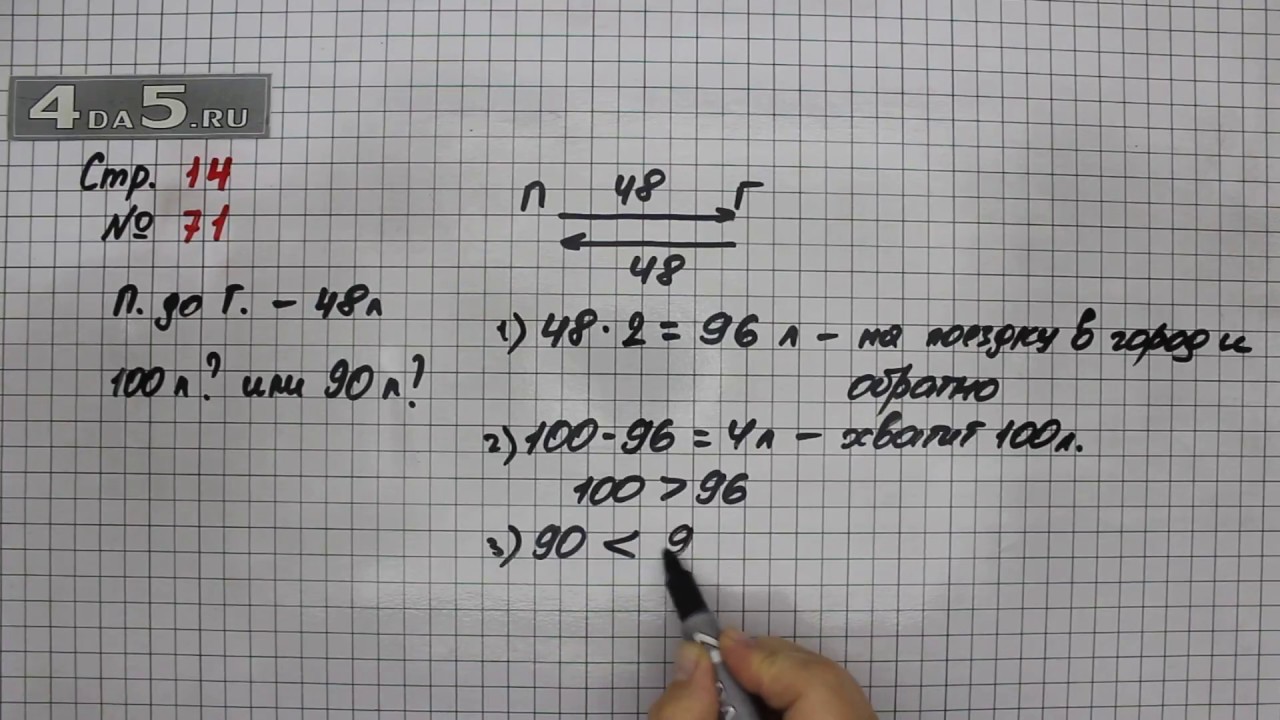 4DA5.RU
Стр. 14
№ 71
П 48 Г
48
П. до Г. – 48л
100л? или 90л?
1) 48·2 = 96 л – на поездку в город и
обратно
2) 100-96 = 4л – хватит 100л.
100 > 96
3) 90 < 9